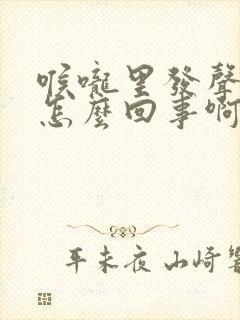 喉嚨里發聲
怎麼回事啊
平未夜 山崎響